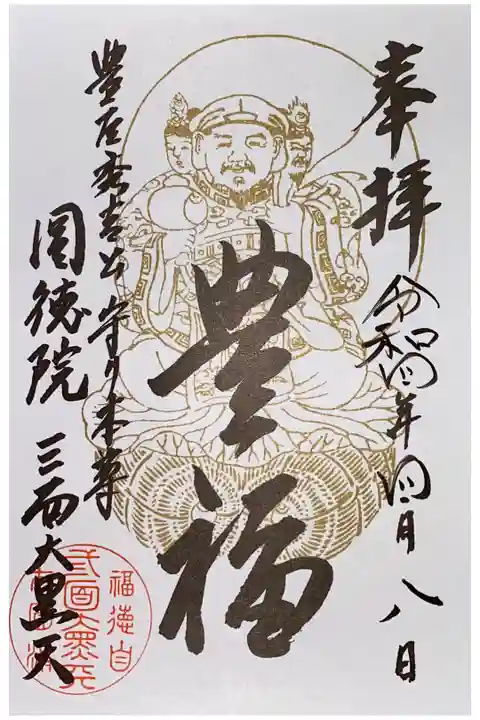 奉拝
令和四年四月八日
豊福
豊臣秀吉公守り本尊
圓徳院 三面大黒天
福徳自
三面大黒天